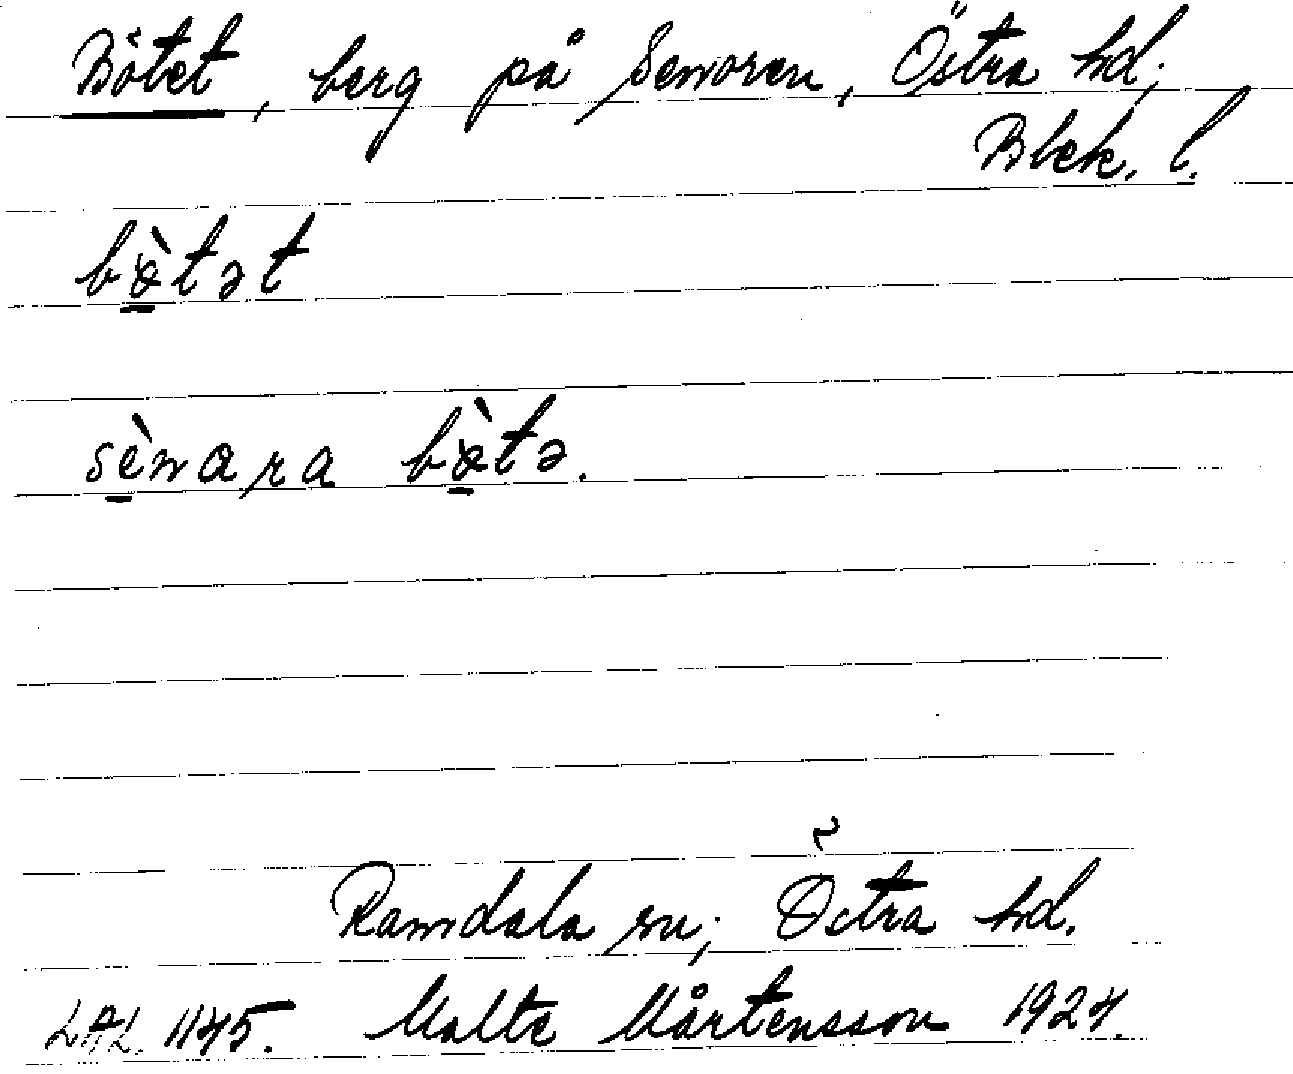 Bötet, berg på Senoren, Östra hd;
Blek. l.
bø̀tət
sènara bø̀tə.
Ramdala sn; Östra hd.
LAL. 1145. Malte Mårtensson 1924.